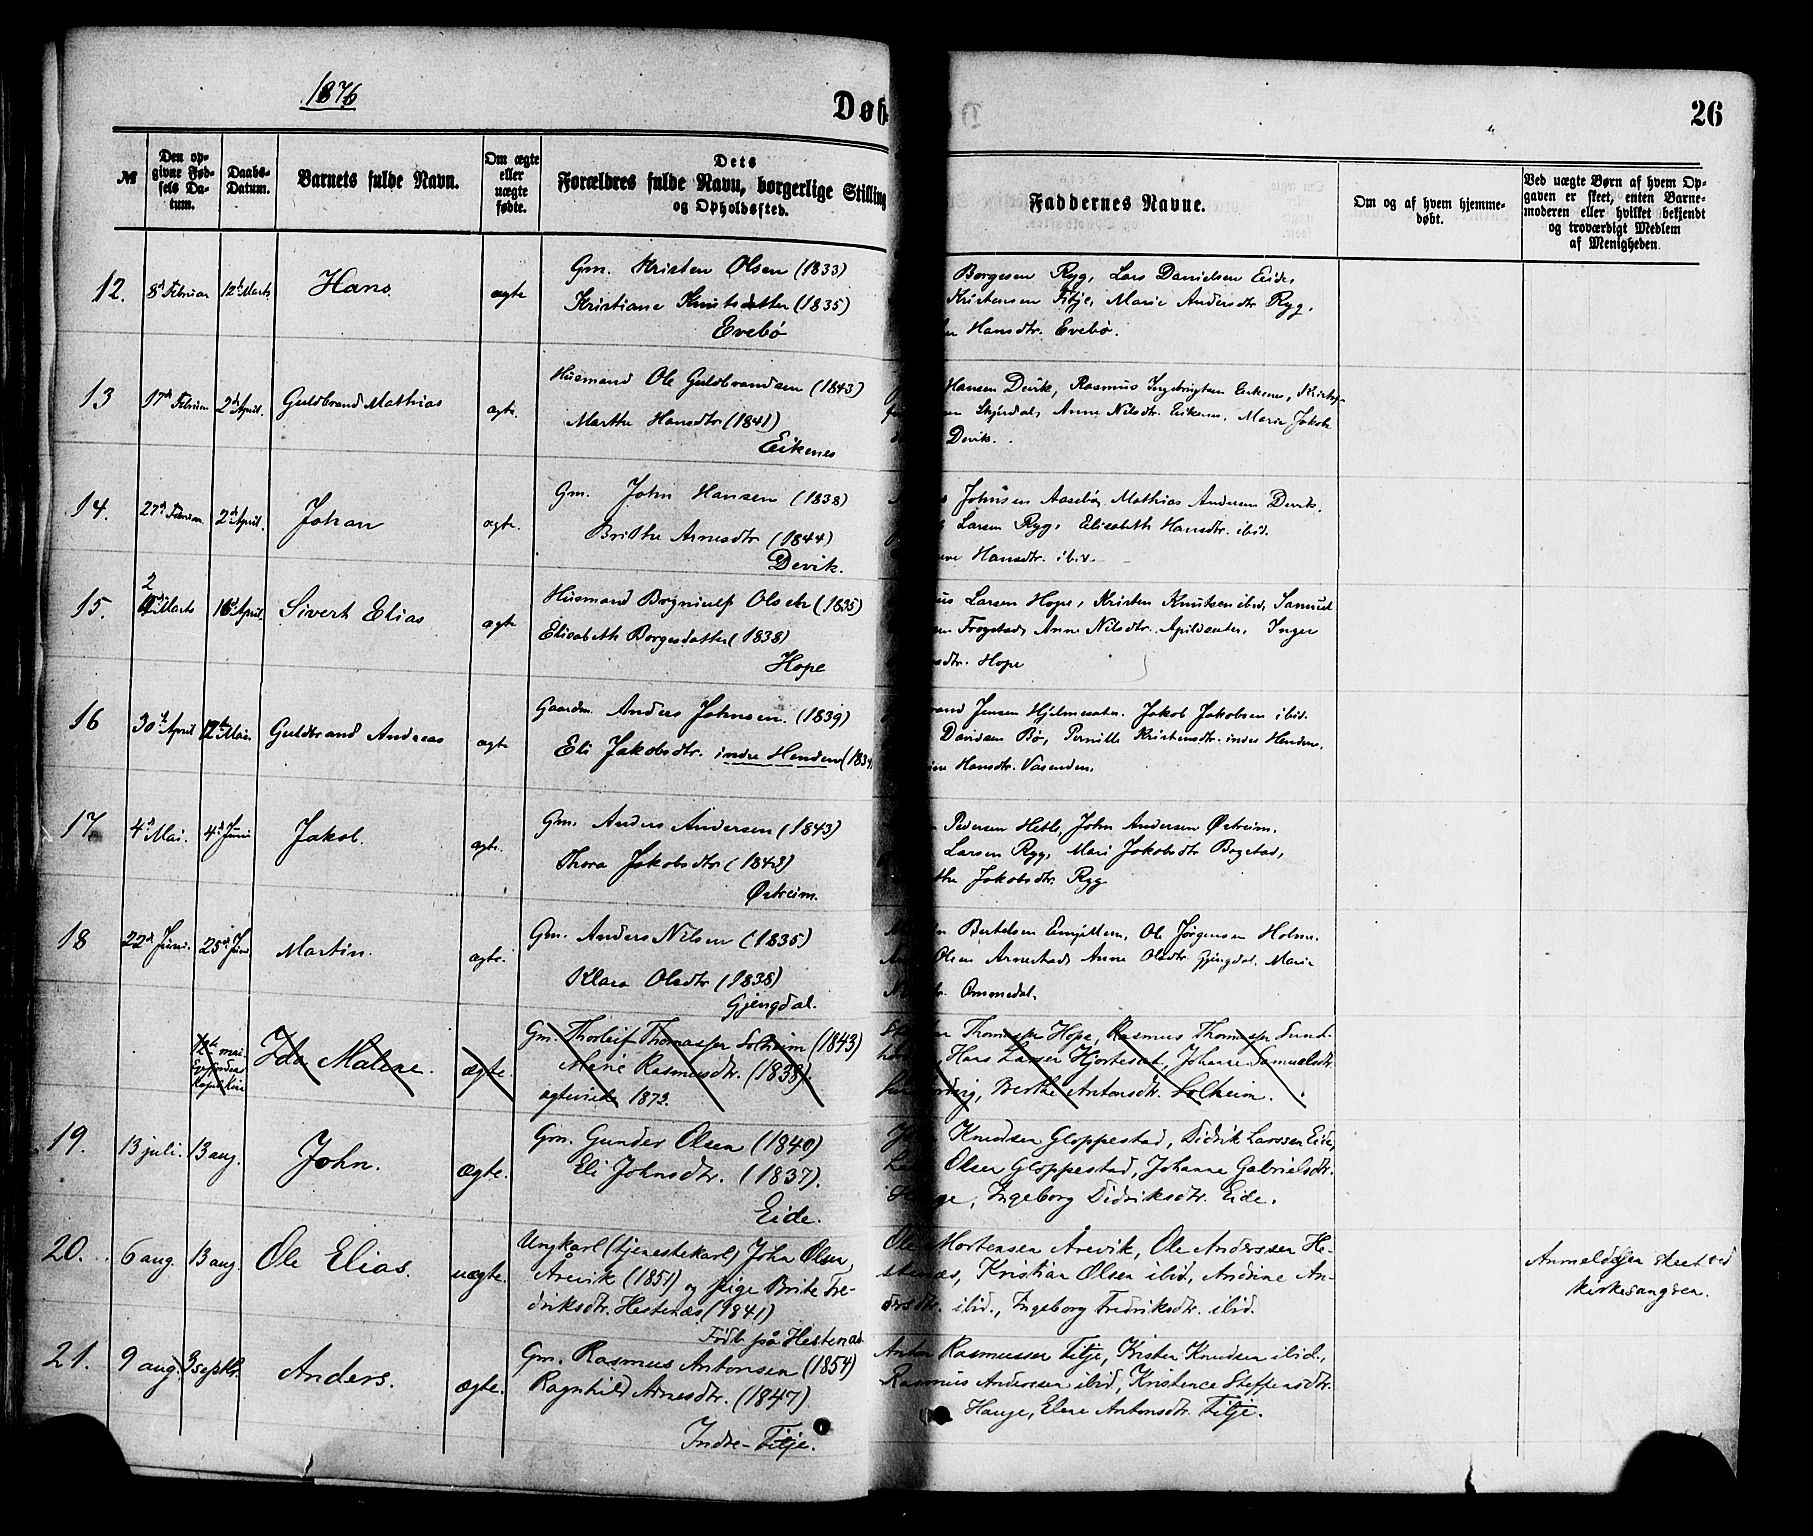 1876
Døb
26
№
Den op-
givne Fød-
sels Da-
tum.
Daabs-
Datum.
Barnets fulde Navn.
Om ægte
eller
uægte
fødte.
Dets
Forældres fulde Navn, borgerlige Stilling
og Opholdssted.
Faddernes Navne.
Om og af hvem hjemme-
døbt.
Ved uægte Børn af hvem Op-
gaven er skeet, enten Barne-
moderen eller hvilket bekjendt
og troværdigt Medlem
af Menigheden.
12. 8d Februar 12t Marts Hans. ægte
Gm. Kristen Olsen (1833)
Kristiane Knutsdatter (1835)
Evebø
Borgesen Ryg, Lars Danielsen Eide,
Kristensen Fitje, Marie Andersdtr Ryg,
Hansdtr. Evebø.
13 17de Februar 2d April. Guldbrand Mathias ægte.
Husmand Ole Guldbrandsen (1843)
Marthe Hansdtr (1841)
Eikenes
Hansen Devik, Rasmus Ingebrigtsen Eikenes,
Skjerdal, Anne Nilsdtr. Eikenes, Marie Jakobs
Devik.
14. 27d Februar. 2d April. Johan ægte.
Gm. John Hansen (1838)
Brithe Arnesdtr (1844)
Devik.
Johnsen Aasebø, Mathias Andersen Devik.
Larsen Ryg, Elisabeth Hansdtr. ibid.
Hansdtr. ibid.
15. 2 Marts 16d April. Sivert Elias ægte
Husmand Bryniulf Olsen (1835)
Elisabeth Borgesdatter (1838)
Hope
Larsen Hope, Kristen Knutsen ibid, Samuel
Frogstad, Anne Nilsdtr. Apildsæter. Inger
dtr. Hope
16 30te April 12te Mai. Guldbrand Andreas ægte
Gaardm. Anders Johnsen. (1839)
Eli Jakobsdtr. indre Henden (183
Jensen Hjelmesæter. Jakob Jakobsen ibid.
Davidsen Bø, Pernille Kristensdtr. indre Henden,
Hansdtr. Vasenden.
17 4d Mai. 4d Juni Jakob. ægte.
Gm. Anders Andersen (1843)
Thora Jakobsdtr (1843)
Østreim.
Pedersen Hetle, John Andersen Østreim.
Larsen Ryg, Mari Jakobsdtr Bogstad,
Jakobsdtr. Ryg
18 22d Juni. 25d Juni Martin. ægte.
Gm. Anders Nilsen (1835)
Klara Olsdtr (1838)
Gjengdal.
Bertelsen Emjellem, Ole Jørgensen Holme.
Olsen Arnestad, Anne Olsdtr Gjengdal. Marie
Ommedal.
12te mai. Ida Malene. ægte.
Gm. Thorleif Thomassen Solheim (1843)
Marie Rasmusdtr. (1838).
ægteviede 1872.
Thomassen Hope, Rasmus Thomassen Sund-
Hans Larsen Hjorteset, Johanne Samuelsdtr.
Berthe Antonsdtr. Solheim.
19. 13 juli. 13 aug. John. ægte.
Gm. Gunder Olsen (1840)
Eli Johnsdtr. (1837).
Eide.
Knudsen Gloppestad, Didrik Larssen Eide,
Olsen Gloppestad, Johanne Gabrielsdtr.
Ingeborg Didriksdtr. Eide.
20. 6 aug. 13 aug. Ole Elias. uægte.
Ungkarl (tjenestekarl) John Olsen
Årevik (1851) og pige Brite Fre-
driksdtr. Hestenæs (1841)
Født på Hestenæs
Ole Mortensen Årevik, Ole Anderssen He-
stenæs, Kristian Olsen ibid, Andrine An-
dersdtr. ibid., Ingeborg Fredriksdtr. ibid.
Anmeldelsen skeet ved
kirkesangeren.
21. 9 aug. 3 septbr. Anders. ægte.
Gm. Rasmus Antonsen (1854)
Ragnhild Arnesdtr. (1847)
Indre-Fitje.
Anton Rasmussen Fitje, Kristen Knudsen ibid.,
Rasmus Anderssen ibid, Kristence Steffensdtr.
Hauge, Elene Antonsdtr. Fitje.